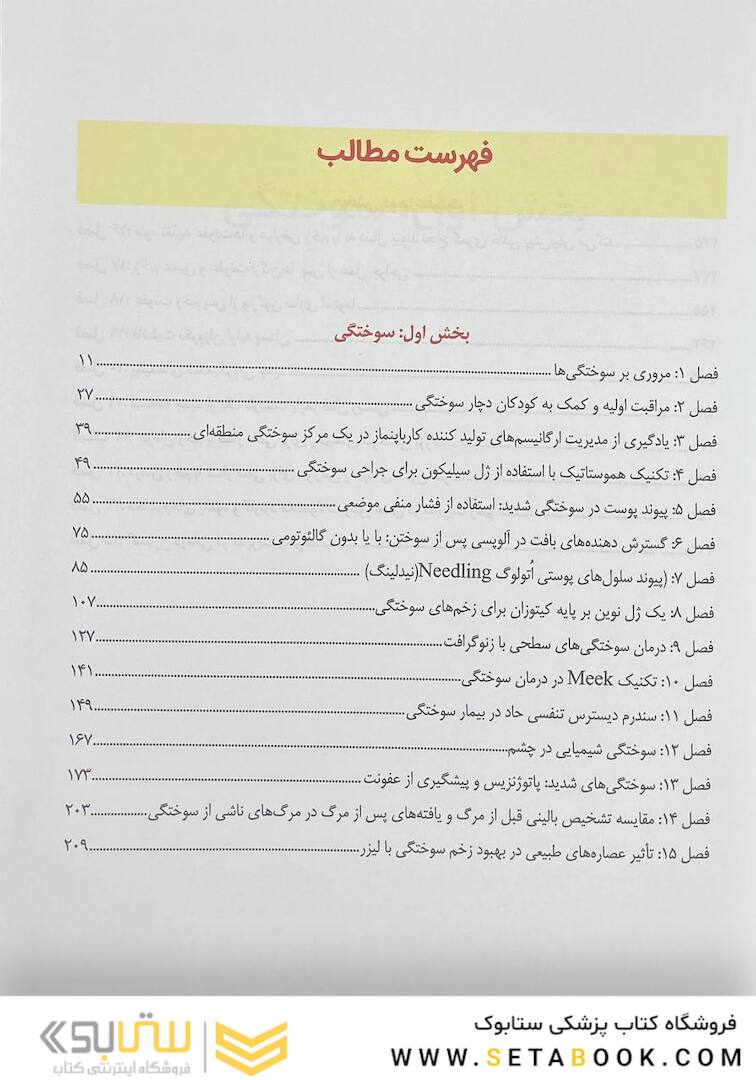 فهرست مطالب
بخش اول: سوختگی
فصل ۱: مروری بر سوختگی‌ها ........ ۱۱
فصل ۲: مراقبت اولیه و کمک به کودکان دچار سوختگی ........ ۲۷
فصل ۳: یادگیری از مدیریت ارگانیسم‌های تولید کننده کارباپنماز در یک مرکز سوختگی منطقه‌ای ........ ۳۹
فصل ۴: تکنیک هموستاتیک با استفاده از ژل سیلیکون برای جراحی سوختگی ........ ۴۹
فصل ۵: پیوند پوست در سوختگی شدید: استفاده از فشار منفی موضعی ........ ۵۵
فصل ۶: گسترش دهنده‌های بافت در آلوپسی پس از سوختن: با یا بدون گالئوتومی ........ ۷۵
فصل ۷: (پیوند سلول‌های پوستی اُتولوگ Needling(نیدلینگ) ........ ۸۵
فصل ۸: یک ژل نوین بر پایه کیتوزان برای زخم‌های سوختگی ........ ۱۰۷
فصل ۹: درمان سوختگی‌های سطحی با زنوگرافت ........ ۱۲۷
فصل ۱۰: تکنیک Meek در درمان سوختگی ........ ۱۴۱
فصل ۱۱: سندرم دیسترس تنفسی حاد در بیمار سوختگی ........ ۱۴۹
فصل ۱۲: سوختگی شیمیایی در چشم ........ ۱۶۷
فصل ۱۳: سوختگی‌های شدید: پاتوژنزیس و پیشگیری از عفونت ........ ۱۷۳
فصل ۱۴: مقایسه تشخیص بالینی قبل از مرگ و یافته‌های پس از مرگ در مرگ‌های ناشی از سوختگی ........ ۲۰۳
فصل ۱۵: تأثیر عصاره‌های طبیعی در بهبود زخم سوختگی با لیزر ........ ۲۰۹
فروشگاه کتاب پزشکی ستابوک
WWW.SETABOOK.COM
ستابوک
فروشگاه اینترنتی کتاب